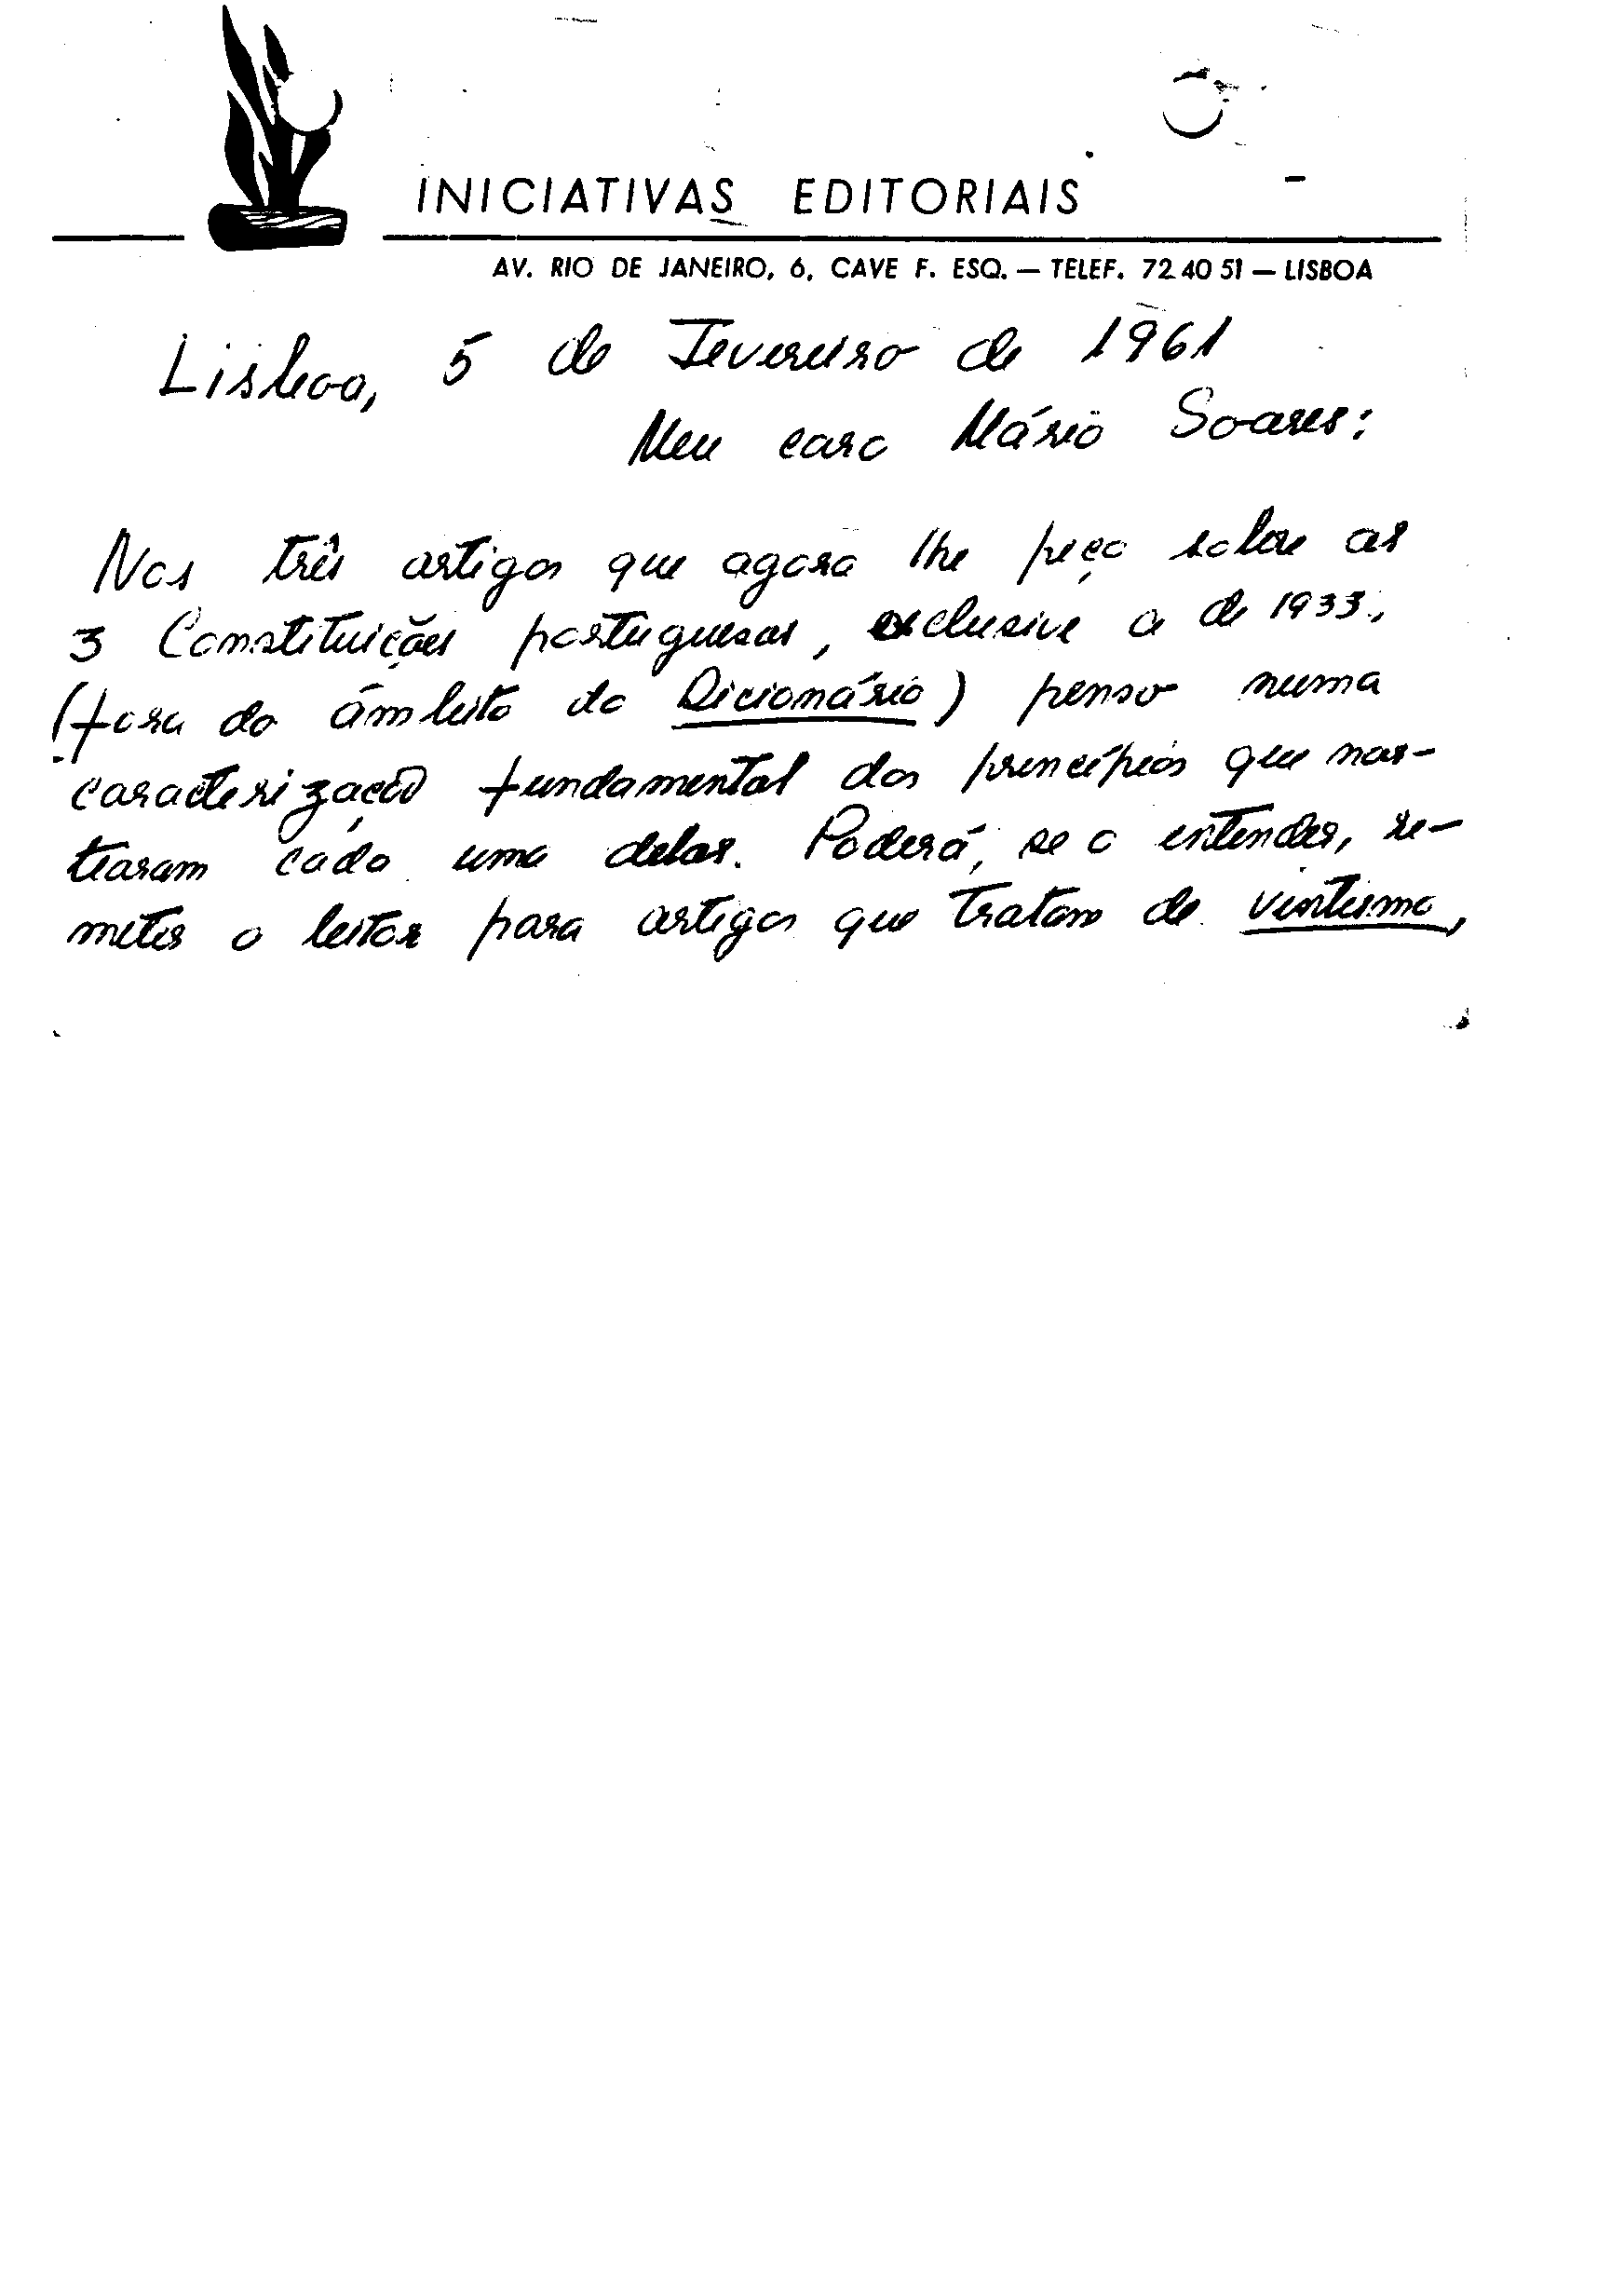 INICIATIVAS EDITORIAIS
AV. RIO DE JANEIRO, 6, CAVE F. ESQ. — TELEF. 72 40 51 — LISBOA
Lisboa, 5 de Fevereiro de 1961
Meu caro Mário Soares:
Nos três artigos que agora lhe peço sobre as
3 Constituições portuguesas, exclusive a de 1933,
(fora do âmbito do Dicionário) penso numa
caracterização fundamental dos princípios que nor-
tearam cada uma delas. Poderá, se o entender, re-
meter o leitor para artigos que tratam de vintismo,